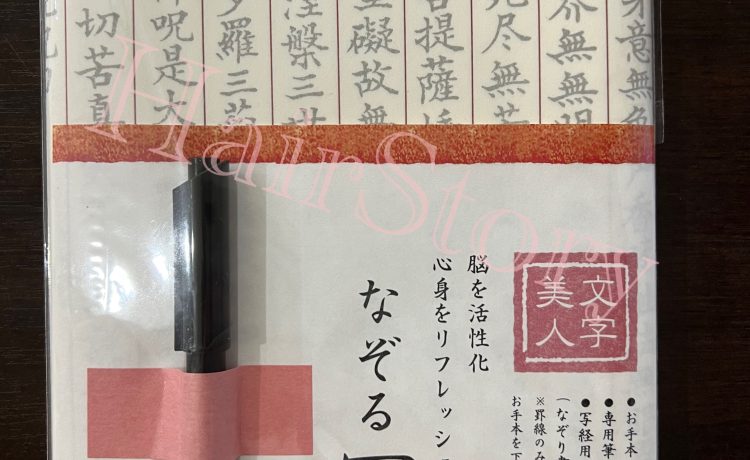 身意無色
界無無明
死尽無苦
菩提薩
罣礙故無
涅槃三世
多羅三藐
神呪是大
切苦真
HairStory
文字
美人
脳を活性化
心身をリフレッシ
なぞる
●お手本
●専用筆
●写経用
(なぞり
※罫線のみ
お手本を下